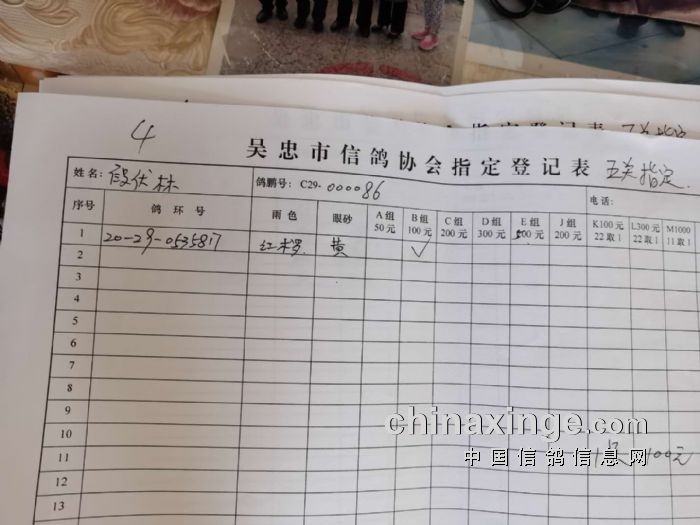 4
吴忠市信鸽协会指定登记表 五关指定
姓名: 段伏林 鸽鹏号: C29-000086 电话:
序号 鸽环号 雨色 眼砂 A组 50元 B组 100元 C组 200元 D组 300元 E组 500元 J组 200元 K100元 22取1 L300元 22取1 M1000 11取1
1 20-29-0535817 红末罗 黄 ✓
2
3
4
5
6
7
8
9
10
11 100元
12
13
chinaxinge.com
中国信鸽信息网